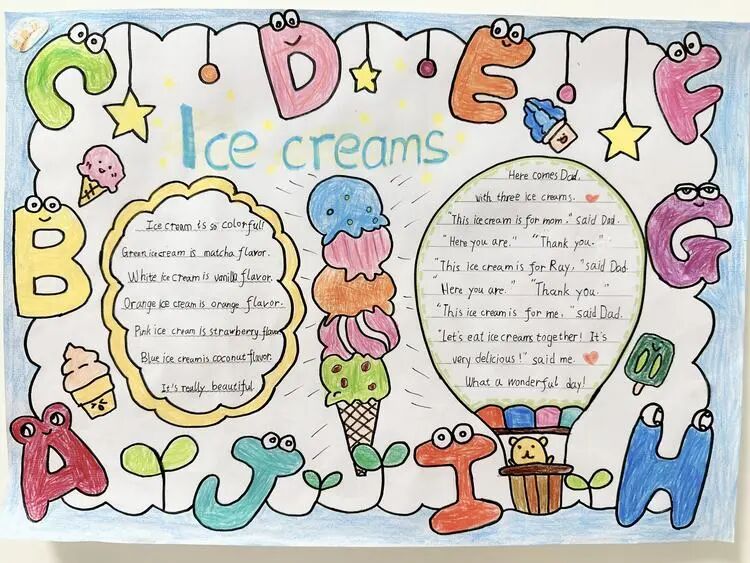 C D E F
Ice creams
B
Ice cream is so colorful!
Green ice cream is matcha flavor.
White ice cream is vanilla flavor.
Orange ice cream is orange flavor.
Pink ice cream is strawberry flavor
Blue ice cream is coconut flavor.
It's really beautiful.
Here comes Dad.
with three ice creams.
"This ice cream is for mom." said Dad.
"Here you are." "Thank you."
"This ice cream is for Ray." said Dad.
"Here you are." "Thank you."
"This ice cream is for me." said Dad.
"Let's eat ice creams together! It's
very delicious!" said me.
What a wonderful day!
G
A J I H